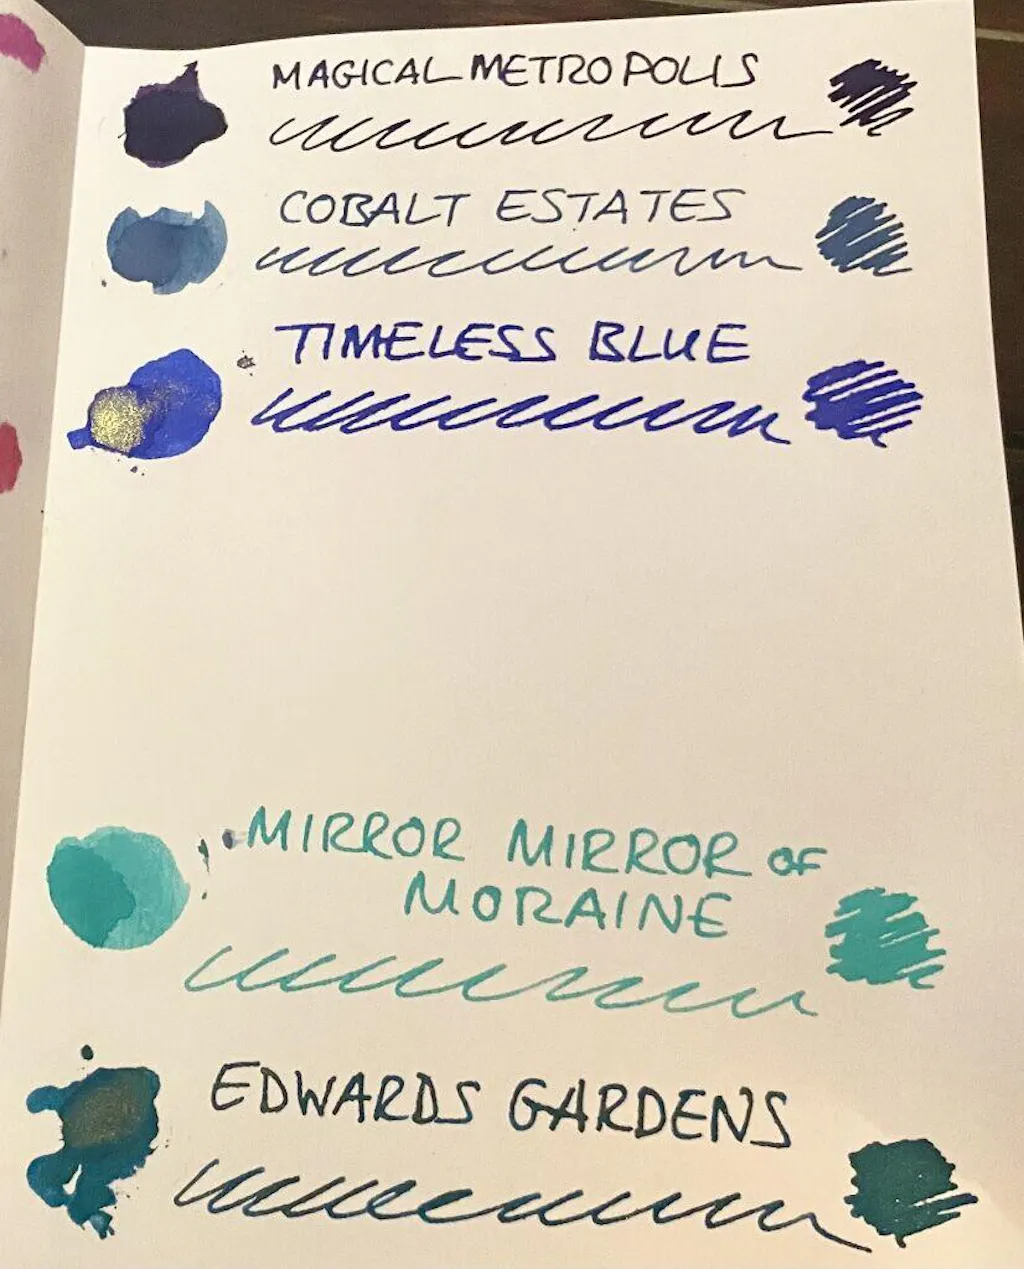 MAGICAL METROPOLIS
COBALT ESTATES
TIMELESS BLUE
MIRROR MIRROR OF
MORAINE
EDWARDS GARDENS